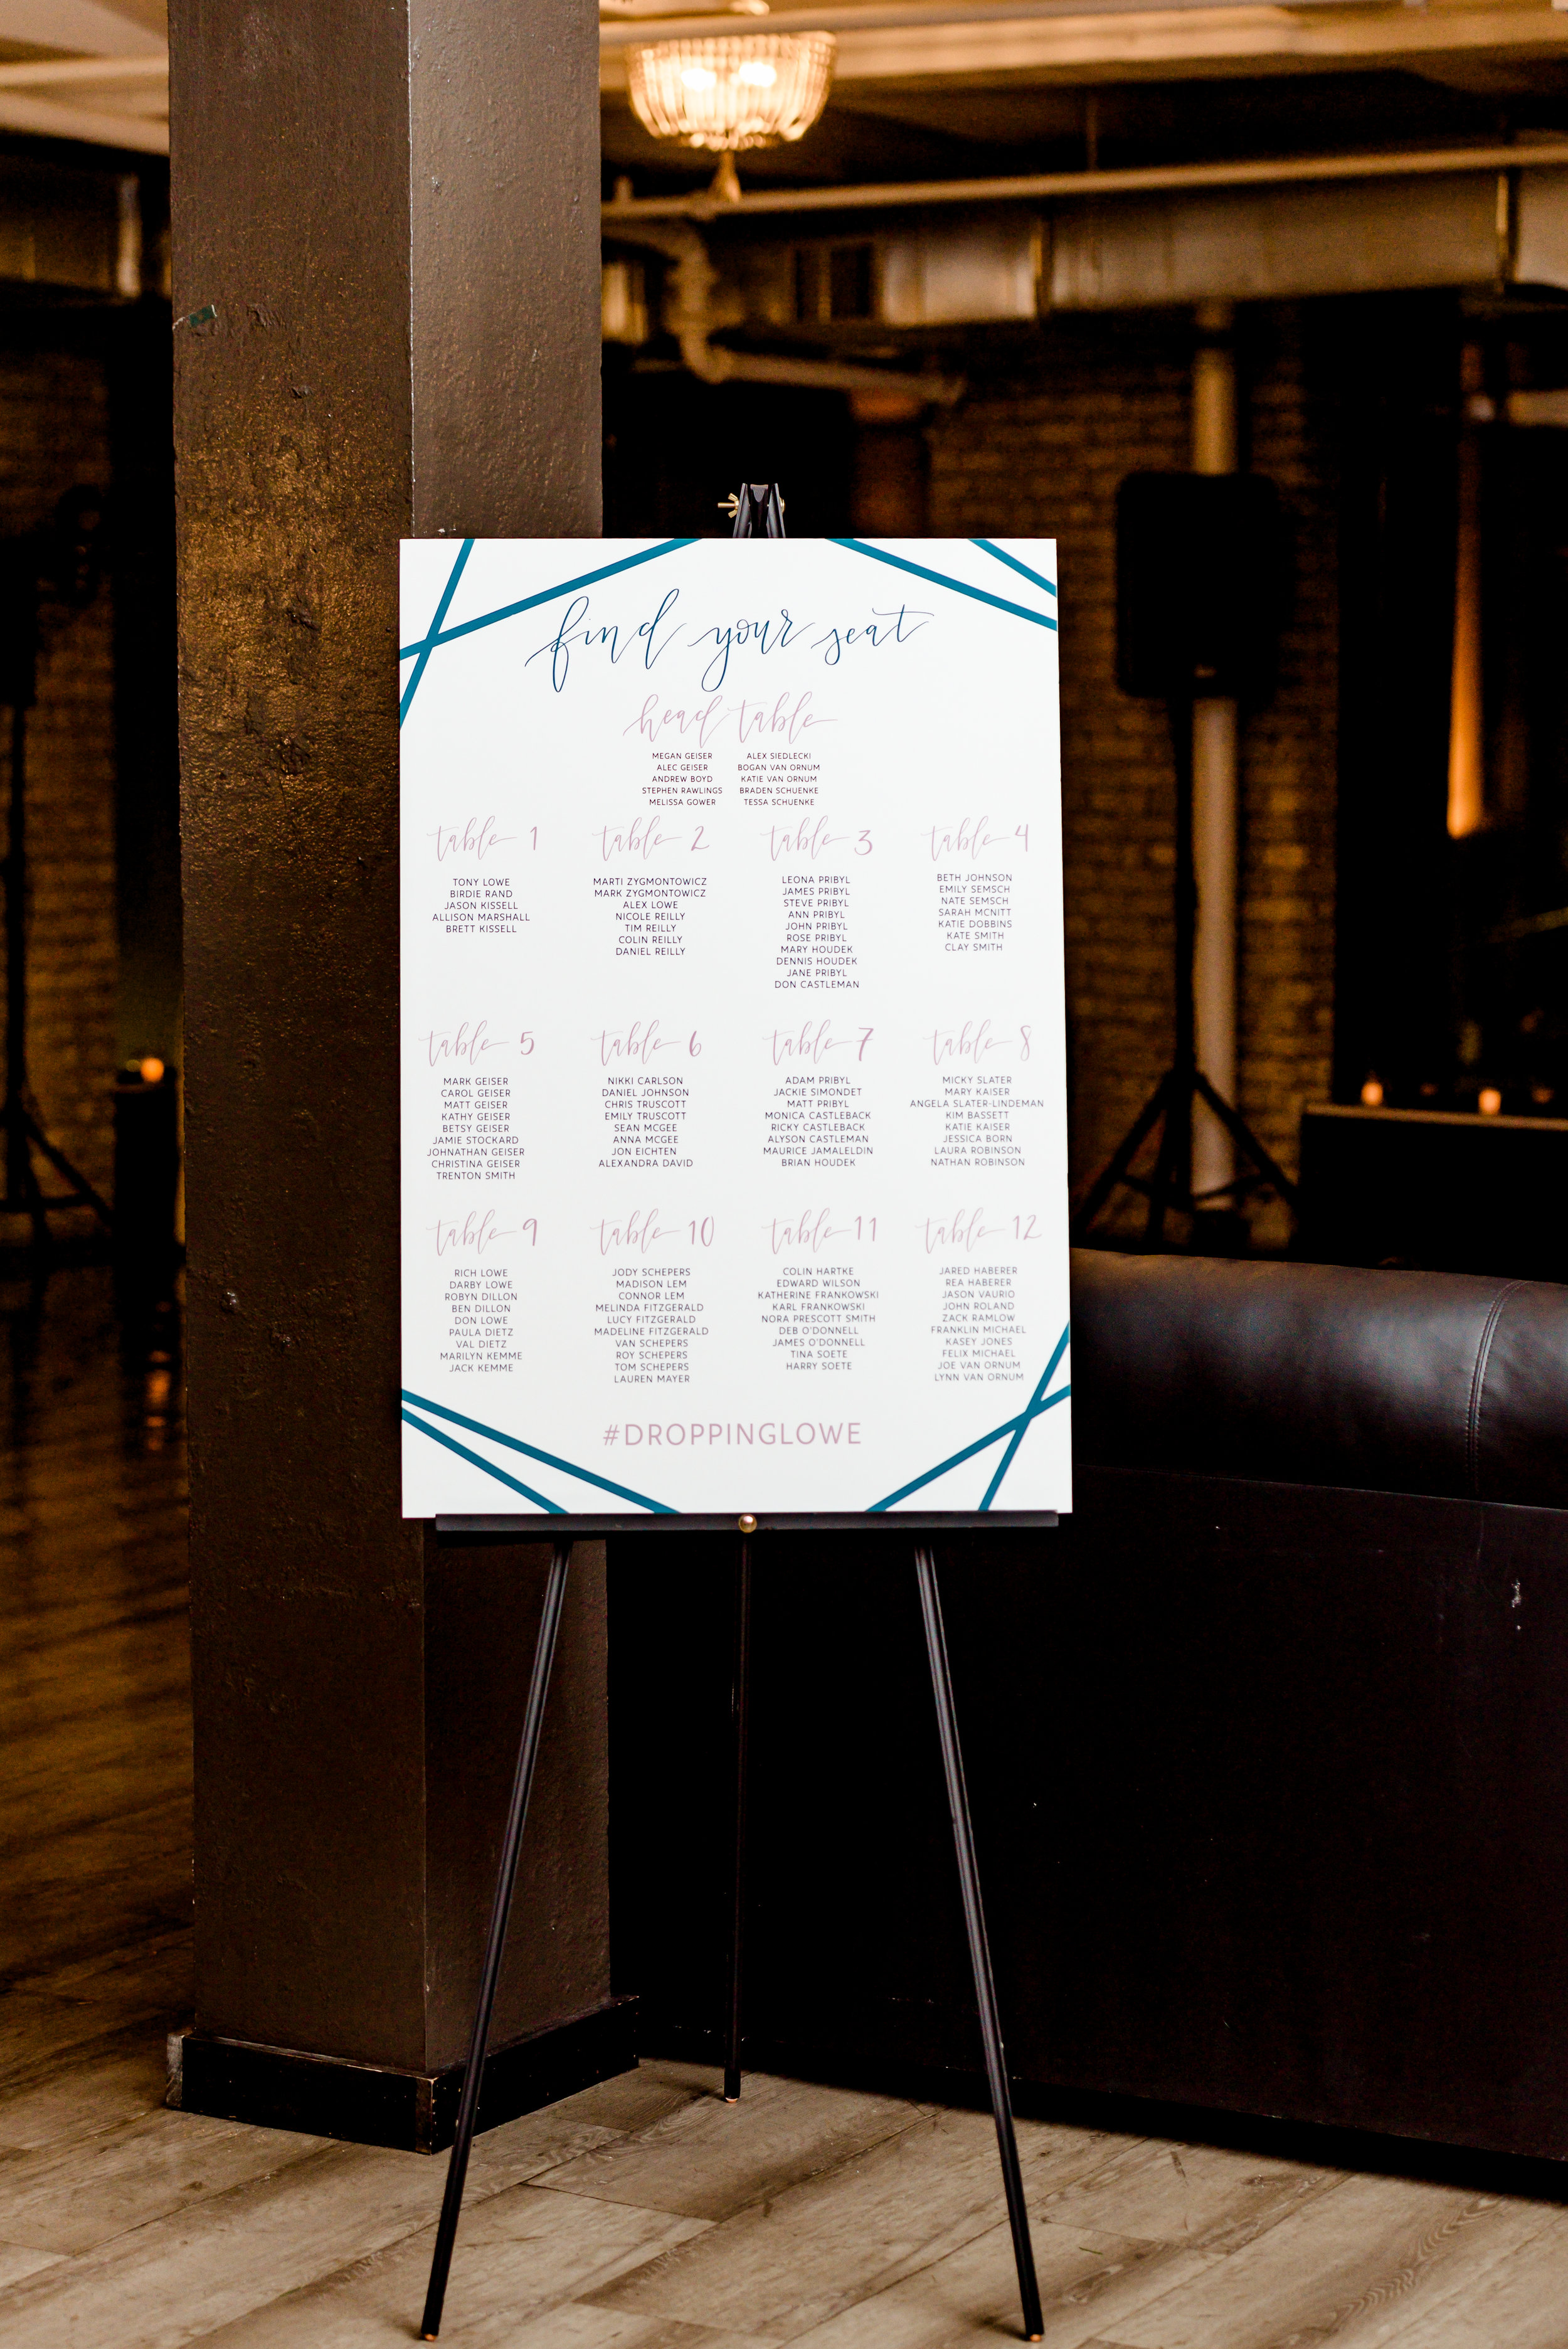 find your seat
head table
MEGAN GEISER
ALEC GEISER
ANDREW BOYD
STEPHEN RAWLINGS
MELISSA GOWER
ALEX SIEDLECKI
BOGAN VAN ORNUM
KATIE VAN ORNUM
BRADEN SCHUENKE
TESSA SCHUENKE
table 1
TONY LOWE
BIRDIE RAND
JASON KISSELL
ALLISON MARSHALL
BRETT KISSELL
table 2
MARTI ZYGMONTOWICZ
MARK ZYGMONTOWICZ
ALEX LOWE
NICOLE REILLY
TIM REILLY
COLIN REILLY
DANIEL REILLY
table 3
LEONA PRIBYL
JAMES PRIBYL
STEVE PRIBYL
ANN PRIBYL
JOHN PRIBYL
ROSE PRIBYL
MARY HOUDEK
DENNIS HOUDEK
JANE PRIBYL
DON CASTLEMAN
table 4
BETH JOHNSON
EMILY SEMSCH
NATE SEMSCH
SARAH MCNITT
KATIE DOBBINS
KATE SMITH
CLAY SMITH
table 5
MARK GEISER
CAROL GEISER
MATT GEISER
KATHY GEISER
BETSY GEISER
JAMIE STOCKARD
JOHNATHAN GEISER
CHRISTINA GEISER
TRENTON SMITH
table 6
NIKKI CARLSON
DANIEL JOHNSON
CHRIS TRUSCOTT
EMILY TRUSCOTT
SEAN MCGEE
ANNA MCGEE
JON EICHTEN
ALEXANDRA DAVID
table 7
ADAM PRIBYL
JACKIE SIMONDET
MATT PRIBYL
MONICA CASTLEBACK
RICKY CASTLEBACK
ALYSON CASTLEMAN
MAURICE JAMALELDIN
BRIAN HOUDEK
table 8
MICKY SLATER
MARY KAISER
ANGELA SLATER-LINDEMAN
KIM BASSETT
KATIE KAISER
JESSICA BORN
LAURA ROBINSON
NATHAN ROBINSON
table 9
RICH LOWE
DARBY LOWE
ROBYN DILLON
BEN DILLON
DON LOWE
PAULA DIETZ
VAL DIETZ
MARILYN KEMME
JACK KEMME
table 10
JODY SCHEPERS
MADISON LEM
CONNOR LEM
MELINDA FITZGERALD
LUCY FITZGERALD
MADELINE FITZGERALD
VAN SCHEPERS
ROY SCHEPERS
TOM SCHEPERS
LAUREN MAYER
table 11
COLIN HARTKE
EDWARD WILSON
KATHERINE FRANKOWSKI
KARL FRANKOWSKI
NORA PRESCOTT SMITH
DEB O'DONNELL
JAMES O'DONNELL
TINA SOETE
HARRY SOETE
table 12
JARED HABERER
REA HABERER
JASON VAURIO
JOHN ROLAND
ZACK RAMLOW
FRANKLIN MICHAEL
KASEY JONES
FELIX MICHAEL
JOE VAN ORNUM
LYNN VAN ORNUM
#DROPPINGLOWE